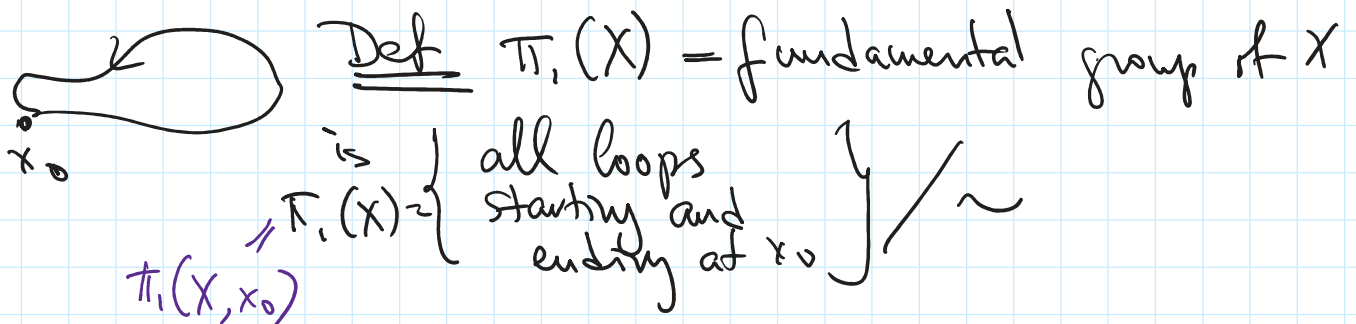 Def π₁(X) = fundamental group of X
is
π₁(X) = { all loops starting and ending at x₀ } / ~
=
π₁(X, x₀)
x₀